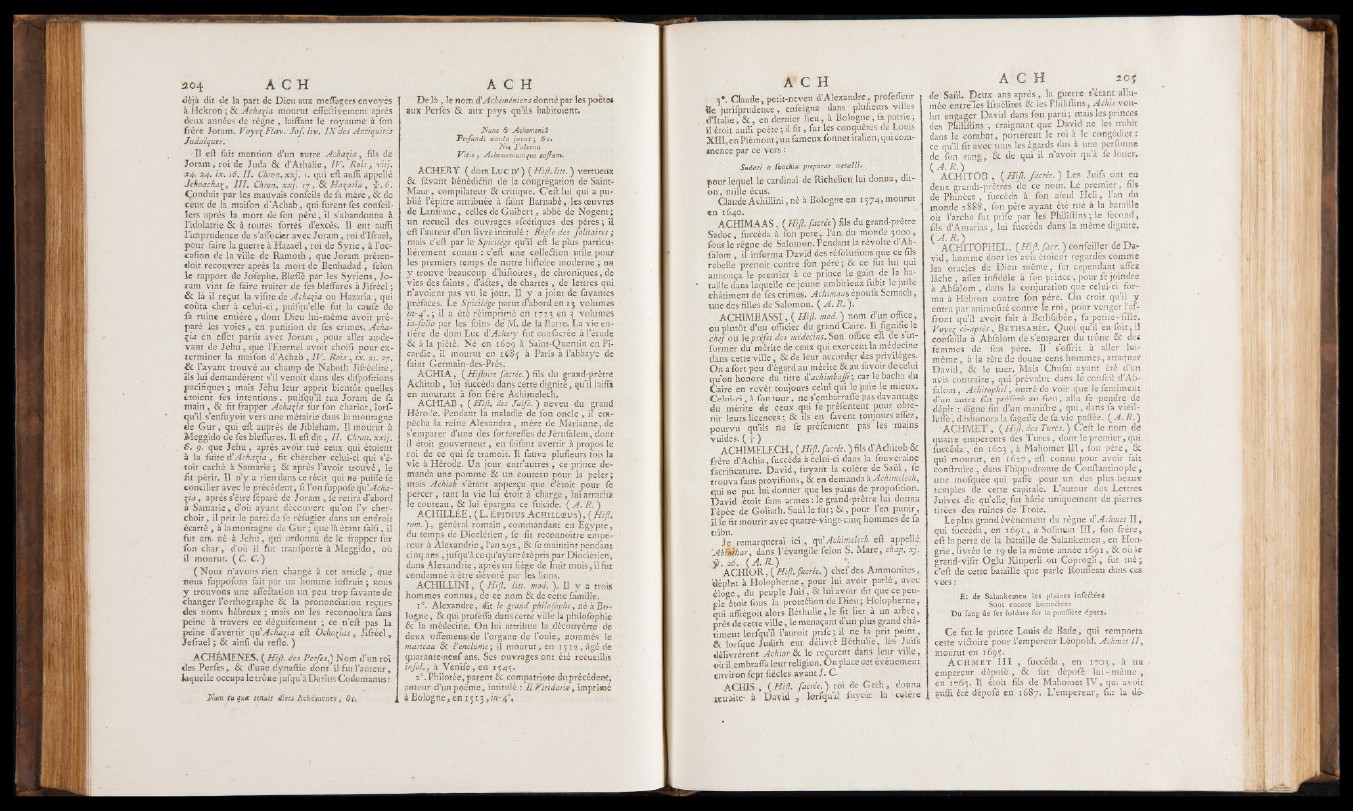 204 A C H
déjà dit de la part de Dieu aux meſſagers envoyés
à Hekron ; & Achaꝣia mourut effectivement après
deux années de règne, laiſſant le royaume à ſon
frère Joram. Voyez Flav. Joſ. liv. IX des Antiquités
Judaïques.
Il eſt fait mention d'un autre Achazia, fils de
Joram, roi de Juda & d'Athalie, IV. Rois, viij.
24. 24. ix. 16. II. Chron. xxj. 1. qui eſt auſſi appellé
Jehoachaz, III. Chron. xxj. 17, & Hazaria, ℣. 6.
Conduit par les mauvais conſeils de ſa mère, & de
ceux de la maiſon d'Achab, qui furent ſes conſeil-
lers après la mort de ſon père, il s'abandonna à
l'idolatrie & à toutes ſortes d'excès. Il eut auſſi
l'imprudence de s'aſſocier avec Joram, roi d'Iſraël,
pour faire la guerre à Hazaël, roi de Syrie, à l'oc-
caſion de la ville de Ramoth, que Joram préten-
doit recouvrer après la mort de Benhadad, ſelon
le rapport de Joſephe. Bleſſé par les Syriens, Jo-
ram vint ſe faire traiter de ſes bleſſures à Jiſréel ;
& là il reçut la viſite de Achazia ou Hazaria, qui
coûta cher à celui-ci, puiſqu'elle fut la cauſe de
ſa ruine entière, dont Dieu lui-même avoit pré-
paré les voies, en punition de ſes crimes. Acha-
zia en effet partit avec Joram, pour aller au-de-
vant de Jehu, que l'Eternel avoit choiſi pour ex-
terminer la maiſon d'Achab, IV. Rois, ix. 21. 27.
& l'ayant trouvé au champ de Naboth Jiſréelite,
ils lui demandèrent s'il venoit dans des diſpoſitions
pacifiques ; mais Jéhu leur apprit bientôt quelles
étoient ſes intentions, puiſqu'il tua Joram de ſa
main, & fit frapper Achazia ſur ſon chariot, lorſ-
qu'il s'enfuyoit vers une métairie dans la montagne
de Gur, qui eſt auprès de Jibleham. Il mourut à
Meggido de ſes bleſſures. Il eſt dit, II. Chron. xxij.
8. 9. que Jehu, après avoir tué ceux qui étoient
à la ſuite d'Achazia, fit chercher celui-ci qui s'é-
toit caché à Samarie ; & après l'avoir trouvé, le
fit périr. Il n'y a rien dans ce récit qui ne puiſſe ſe
concilier avec le précédent, ſi l'on ſuppoſe qu'Acha-
zia, après s'être ſéparé de Joram, ſe retira d'abord
à Samarie, d'où ayant découvert qu'on l'y cher-
choit, il prit le parti de ſe réfugier dans un endroit
écarté, à la montagne de Gur ; que là étant ſaiſi, il
fut amené à Jehu, qui ordonna de le frapper ſur
ſon char, d'où il fut tranſporté à Meggido, où
il mourut. ( C. C. )
( Nous n'avons rien changé à cet article, que
nous ſuppoſons fait par un homme inſtruit ; nous
y trouvons une affectation un peu trop ſavante de
changer l'orthographe & la prononciation reçues
des noms hébreux ; mais on les reconnoîtra ſans
peine à travers ce déguiſement ; ce n'eſt pas la
peine d'avertir qu'Achazia eſt Ochozias, Jiſréel,
Jeſrael ; & ainſi du reſte. )
ACHÉMENES. ( Hiſt. des Perſes.) Nom d'un roi
des Perſes, & d'une dynaſtie dont il fut l'auteur,
laquelle occupa le trône juſqu'à Darius Codomanus :
Num tu quæ tenuit dives Achémenes, &c.
A C H
De là, le nom d'Achéméniens donné par les poëtes
aux Perſes & aux pays qu'ils habitoient.
Nunc & Achæmeniâ
Perfundi nardo juvat ; &c.
Nec Falerna
Vitis, Achæmeniumque coſtum.
ACHERY ( dom LUC D' ) ( Hiſt. litt. ) vertueux
& ſavant bénédictin de la congrégation de Saint-
Maur, compilateur & critique. C'eſt lui qui a pu-
blié l'épitre attribuée à ſaint Barnabé, les œuvres
de Lanfranc, celles de Guibert, abbé de Nogent ;
un recueil des ouvrages aſcétiques des pères ; il
eſt l'auteur d'un livre intitulé : Règle des ſolitaires ;
mais c'eſt par le Spicilège qu'il eſt le plus particu-
lièrement connu : c'eſt une collection utile pour
les premiers temps de notre hiſtoire moderne ; on
y trouve beaucoup d'hiſtoires, de chroniques, de
vies des ſaints, d'actes, de chartes, de lettres qui
n'avoient pas vu le jour. Il y a joint de ſavantes
préfaces. Le Spicilége parut d'abord en 13 volumes
in-4°. ; il a été réimprimé en 1723 en 3 volumes
in-folio par les ſoins de M. de la Barre. La vie en-
tière de dom Luc d'Achery fut conſacrée à l'étude
& à la piété. Né en 1609 à Saint-Quentin en Pi-
cardie, il mourut en 1685 à Paris à l'abbaye de
ſaint Germain-des-Prés.
ACHIA, ( Hiſtoire ſacrée. ) fils du grand-prêtre
Achitob, lui ſuccéda dans cette dignité, qu'il laiſſa
en mourant à ſon frère Achimelech.
ACHIAB, ( Hiſt. des Juifs. ) neveu du grand
Hérode. Pendant la maladie de ſon oncle, il em-
pêcha la reine Alexandra, mère de Marianne, de
s'emparer d'une des fortereſſes de Jéruſalem, dont
il étoit gouverneur, en faiſant avertir à propos le
roi de ce qui ſe tramoit. Il ſauva pluſieurs fois la
vie à Hérode. Un jour entr'autres, ce prince de-
manda une pomme & un couteau pour la peler ;
mais Achiab s'étant apperçu que c'étoit pour ſe
percer, tant la vie lui étoit à charge, lui arracha
le couteau, & lui épargna ce ſuicide. ( A. R. )
ACHILLÉE, ( L. EPIDIUS ACHILLŒUS), ( Hiſt.
rom. ), général romain, commandant en Egypte,
du temps de Dioclétien, ſe fit reconnoître empe-
reur à Alexandrie, l'an 292, & ſe maintint pendant
cinq ans, juſqu'à ce qu'ayant été pris par Dioclétien,
dans Alexandrie, après un ſiége de huit mois, il fut
condamné à être dévoré par les lions.
ACHILLINI, ( Hiſt. litt. mod. ). Il y a trois
hommes connus, de ce nom & de cette famille.
1°. Alexandre, dit le grand philoſophe, né à Bo-
logne, & qui profeſſa dans cette ville la philoſophie
& la médecine. On lui attribue la découverte de
deux oſſemens de l'organe de l'ouie, nommés le
marteau & l'enclume ; il mourut, en 1512, âgé de
quarante-neuf ans. Ses ouvrages ont été recueillis
in-fol., à Veniſe, en 1545.
2°. Philotée, parent & compatriote du précédent,
auteur d'un poëme, intitulé : Il Viridario, imprimé
à Bologne, en 1513, in-4°.
A C H
3°. Claude, petit-neveu d'Alexandre, profeſſeur
de juriſprudence, enſeigna dans pluſieurs villes
d'Italie, &, en dernier lieu, à Bologne, ſa patrie ;
il étoit auſſi poëte ; il fit, ſur les conquêtes de Louis
XIII, en Piémont, un fameux ſonnet italien, qui com-
mence par ce vers :
Sudate o fuochi a preparar metalli.
pour lequel le cardinal de Richelieu lui donna, dit-
on, mille écus.
Claude Achillini, né à Bologne en 1574, mourut
en 1640.
ACHIMAAS, ( Hiſt. ſacrée ) fils du grand-prêtre
Sadoc, ſuccéda à ſon pere, l'an du monde 3000,
ſous le règne de Salomon. Pendant la révolte d'Ab-
ſalom, il informa David des réſolutions que ce fils
rebelle prenoit contre ſon père ; & ce fut lui qui
annonça le premier à ce prince le gain de la ba-
taille dans laquelle ce jeune ambitieux ſubit le juſte
châtiment de ſes crimes. Achimaas épouſa Semach,
une des filles de Salomon. ( A. R. ).
ACHIMBASSI, ( Hiſt. mod. ) nom d'un office,
ou plutôt d'un officier du grand Caire. Il ſignifie le
chef ou le préfet des médecins. Son office eſt de s'in-
former du mérite de ceux qui exercent la médecine
dans cette ville, & de leur accorder des privilèges.
On a fort peu d'égard au mérite & au ſavoir de celui
qu'on honore du titre d'achimbaſſi ; car le bachu du
Caire en revêt toujours celui qui le paie le mieux.
Celui-ci, à ſon tour, ne s'embarraſſe pas davantage
du mérite de ceux qui ſe préſentent pour obte-
nir leurs licences ; & ils en ſavent toujours aſſez,
pourvu qu'ils ne ſe préſentent pas les mains
vuides. ( † )
ACHIMELECH, ( Hiſt. ſacrée. ) fils d'Achitob &
frère d'Achia, ſuccéda à celui-ci dans la ſouveraine
ſacrificature. David, fuyant la colère de Saül, ſe
trouva ſans proviſions, & en demanda à Achimelech,
qui ne put lui donner que les pains de propoſition.
David étoit ſans armes : le grand-prêtre lui donna
l'épée de Goliath. Saül le fut ; &, pour l'en punir,
il le fit mourir avec quatre-vingt-cinq hommes de ſa
tribu.
Je remarquerai ici, qu'Achimelech eſt appellé
Abiathar, dans l'évangile ſelon S. Marc, chap. xj.
℣. 26. ( A. R. )
ACHIOR, ( Hiſt. ſacrée. ) chef des Ammonites,
déplut à Holopherne, pour lui avoir parlé, avec
éloge, du peuple Juif, & lui avoir dit que ce peu-
ple étoit ſous la protection de Dieu ; Holopherne,
qui aſſiégeoit alors Béthulie, le fit lier à un arbre,
près de cette ville, le menaçant d'un plus grand châ-
timent lorſqu'il l'auroit priſe ; il ne la prit point,
& lorſque Judith eut délivré Béthulie, les Juifs
délivrèrent Achior & le reçurent dans leur ville,
où il embraſſa leur religion. On place cet événement
environ ſept ſiècles avant J. C.
ACHIS, ( Hiſt. ſacrée. ) roi de Geth, donna
retraite à David, lorſqu'il fuyoit la colère
A C H 205
de Saül. Deux ans après, la guerre s'étant allu-
mée entre les Iſraélites & les Philiſtins, Achis vou-
lut engager David dans ſon parti ; mais les princes
des Philiſtins, craignant que David ne les trahît
dans le combat, portèrent le roi à le congédier :
ce qu'il fit avec tous les égards dus à une perſonne
de ſon rang, & de qui il n'avoit qu'à ſe louer.
( A. R. )
ACHITOB, ( Hiſt. ſacrée. ) Les Juifs ont eu
deux grands-prêtres de ce nom. Le premier, fils
de Phinées, ſuccéda à ſon aïeul Heli, l'an du
monde 2888, ſon père ayant été tué à la bataille
où l'arche fut priſe par les Philiſtins ; le ſecond,
fils d'Amarias, lui ſuccéda dans la même dignité.
( A. R. )
ACHITOPHEL, ( Hiſt. ſacr. ) conſeiller de Da-
vid, homme dont les avis étoient regardés comme
les oracles de Dieu même, fut cependant aſſez
lâche, aſſez infidèle à ſon prince, pour ſe joindre
à Abſalom, dans la conjuration que celui-ci for-
ma à Hébron contre ſon père. On croit qu'il y
entra par animoſité contre le roi, pour venger l'af-
front qu'il avoit fait à Bethſabée, ſa petite-fille.
Voyez ci-après, BETHSABÉE. Quoi qu'il en ſoit, il
conſeilla à Abſalom de s'emparer du trône & des
femmes de ſon père. Il s'offrit à aller lui-
même, à la tête de douze cens hommes, attaquer
David, & le tuer. Mais Chuſaï ayant été d'un
avis contraire, qui prévalut dans le conſeil d'Ab-
ſalom, Achitophel, outré de voir que le ſentiment
d'un autre fût préféré au ſien, alla ſe pendre de
dépit : digne fin d'un miniſtre, qui, dans ſa vieil-
leſſe, déshonora la ſageſſe de ſa vie paſſée. ( A. R. )
ACHMET, ( Hiſt. des Turcs. ) C'eſt le nom de
quatre empereurs des Turcs, dont le premier, qui
ſuccéda, en 1603, à Mahomet III, ſon père, &
qui mourut, en 1617, eſt connu pour avoir fait
conſtruire, dans l'hippodrome de Conſtantinople,
une moſquée qui paſſe pour un des plus beaux
temples de cette capitale. L'auteur des Lettres
Juives dit qu'elle fut bâtie uniquement de pierres
tirées des ruines de Troie.
Le plus grand événement du règne d'Achmet II,
qui ſuccéda, en 1691, à Soliman III, ſon frère,
eſt la perte de la bataille de Salankemen, en Hon-
grie, livrée le 19 de la même année 1691, & où le
grand-viſir Oglu Kiuperli ou Coprogli, fut tué ;
c'eſt de cette bataille que parle Rouſſeau dans ces
vers :
Et de Salankemen les plaines infectées
Sont encore humectées
Du ſang de ſes ſoldats ſur la pouſſière épars.
Ce fut le prince Louis de Bade, qui remporta
cette victoire pour l'empereur Léopold. Achmet II,
mourut en 1695.
ACHMET III, ſuccéda, en 1703, à un
empereur dépoſé, & fut dépoſé lui-même,
en 1763. Il étoit fils de Mahomet IV, qui avoit
auſſi été dépoſé en 1687. L'empereur, ſur la dé-